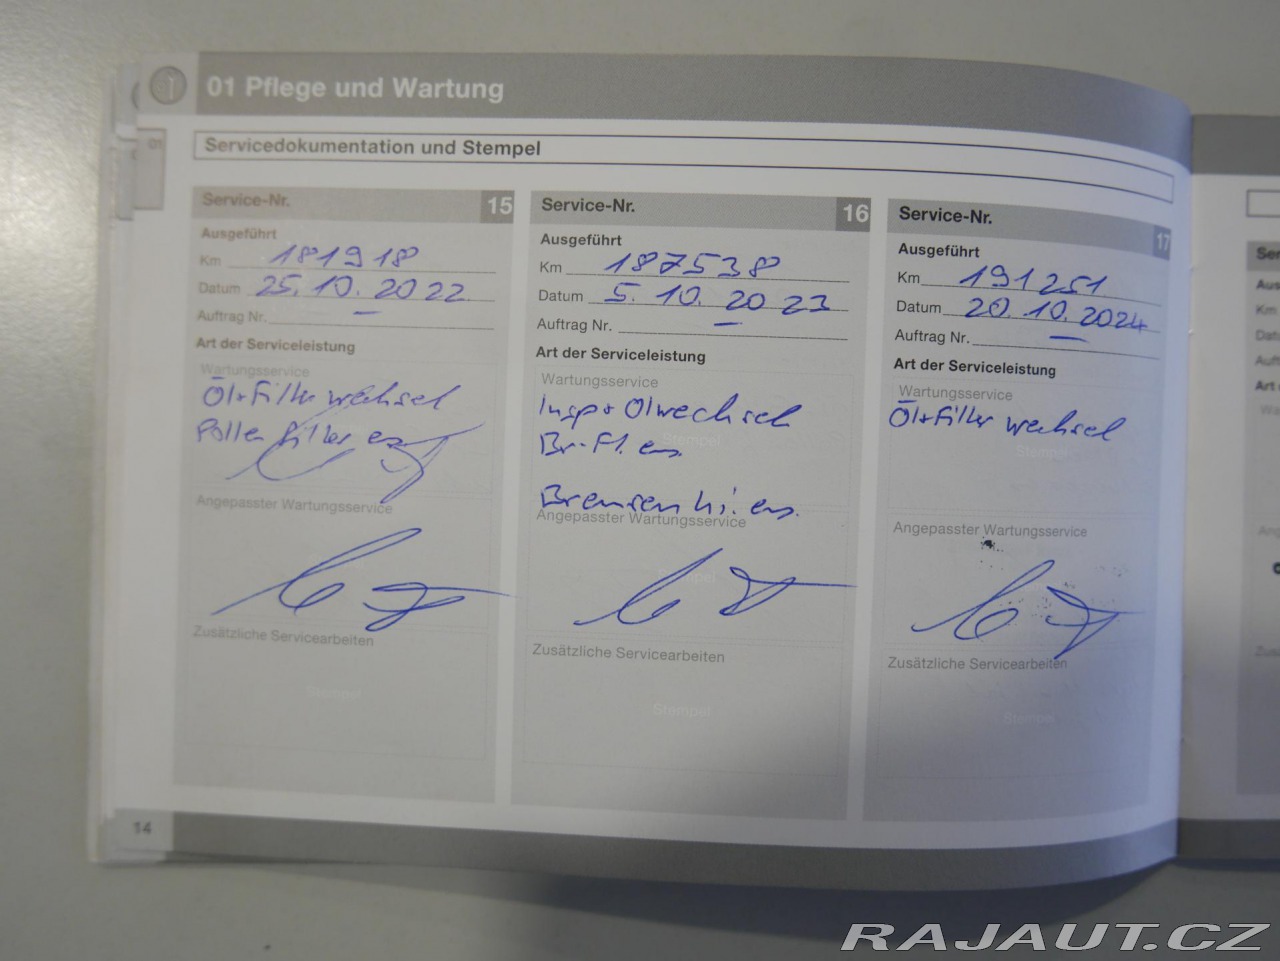 01 Pflege und Wartung
01
Servicedokumentation und Stempel
Service-Nr. 15
Ausgeführt
Km 181918
Datum 25.10.2022
Auftrag Nr. —
Art der Serviceleistung
Wartungsservice
Öl+Filter wechsel
Pollenfilter ern
Angepasster Wartungsservice
Zusätzliche Servicearbeiten
Stempel
Service-Nr. 16
Ausgeführt
Km 187538
Datum 5.10.2023
Auftrag Nr. —
Art der Serviceleistung
Wartungsservice
Insp+Ölwechsel
Stempel
Br-Fl. ern.
Bremsen hi. ern.
Angepasster Wartungsservice
Stempel
Zusätzliche Servicearbeiten
Stempel
Service-Nr. 17
Ausgeführt
Km 191251
Datum 20.10.2024
Auftrag Nr. —
Art der Serviceleistung
Wartungsservice
Öl+Filter wechsel
Stempel
Angepasster Wartungsservice
Zusätzliche Servicearbeiten
Stempel
14
RAJAUT.CZ